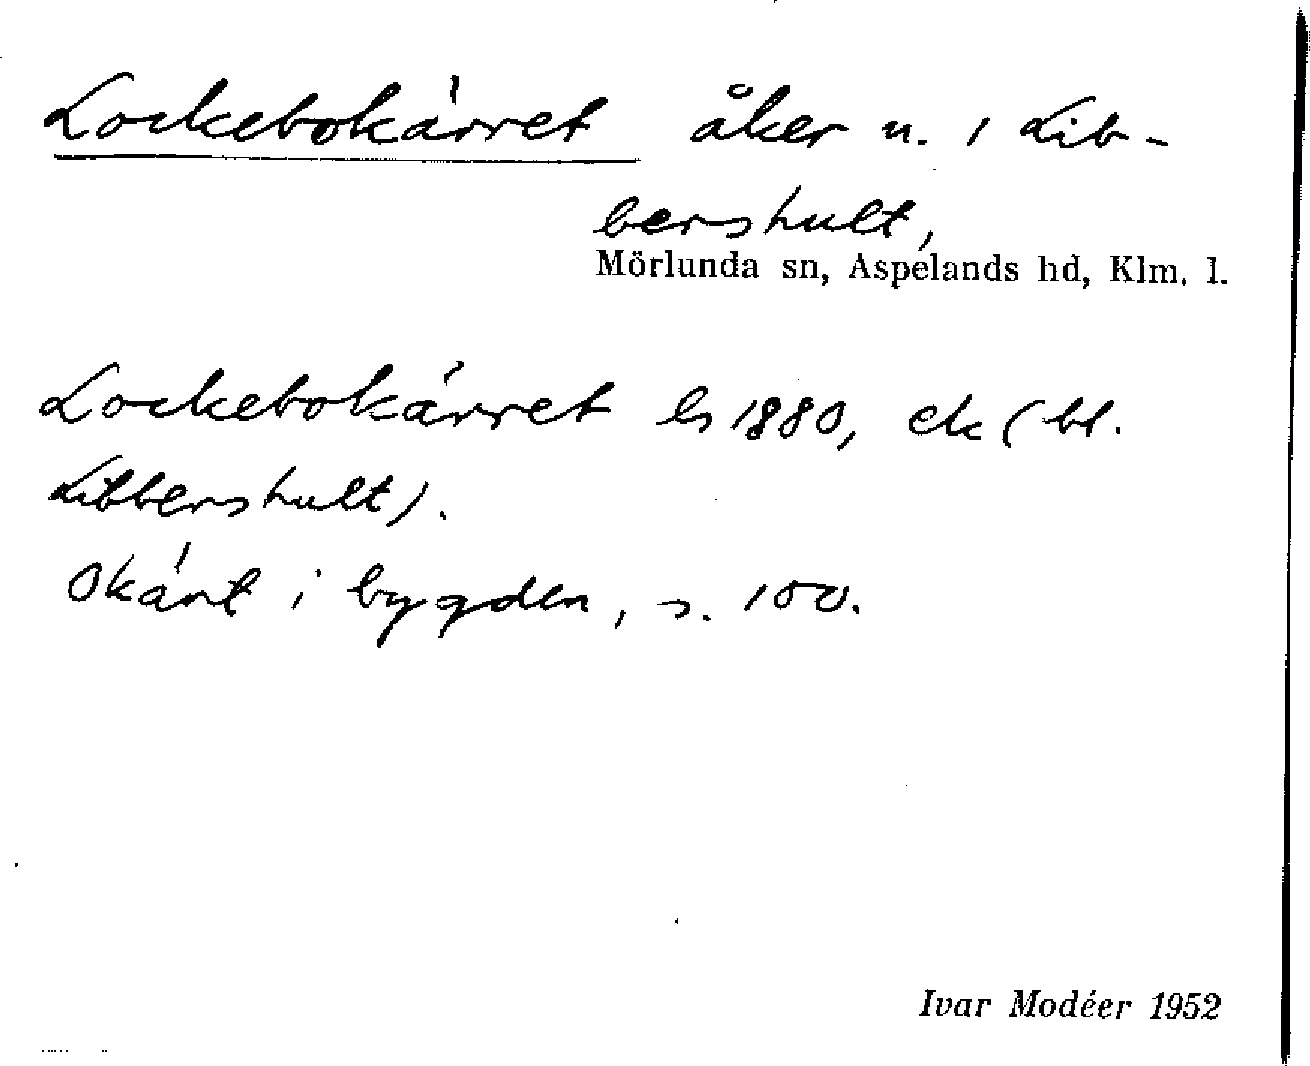 Lockebokärret åker n. 1 Lib-
bershult,
Mörlunda sn, Aspelands hd, Klm. l.
Lockebokärret ls 1880, ek (bl.
Libbershult).
Okänt i bygden, s. 100.
Ivar Modéer 1952